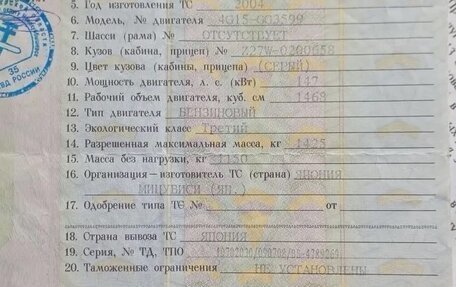 5. Год изготовления ТС 2004
6. Модель, № двигателя 4G15-003599
7. Шасси (рама) № ОТСУТСТВУЕТ
8. Кузов (кабина, прицеп) № Z27W-0200658
9. Цвет кузова (кабины, прицепа) (СЕРЫЙ)
10. Мощность двигателя, л. с. (кВт) 147
11. Рабочий объем двигателя, куб. см 1468
12. Тип двигателя БЕНЗИНОВЫЙ
13. Экологический класс Третий
14. Разрешенная максимальная масса, кг 1425
15. Масса без нагрузки, кг 1150
16. Организация—изготовитель ТС (страна) ЯПОНИЯ
МИЦУБИСИ (ЯП.)
17. Одобрение типа ТС № от
18. Страна вывоза ТС ЯПОНИЯ
19. Серия, № ТД, ТПО
20. Таможенные ограничения НЕ УСТАНОВЛЕНЫ
35
ВД РОССИИ